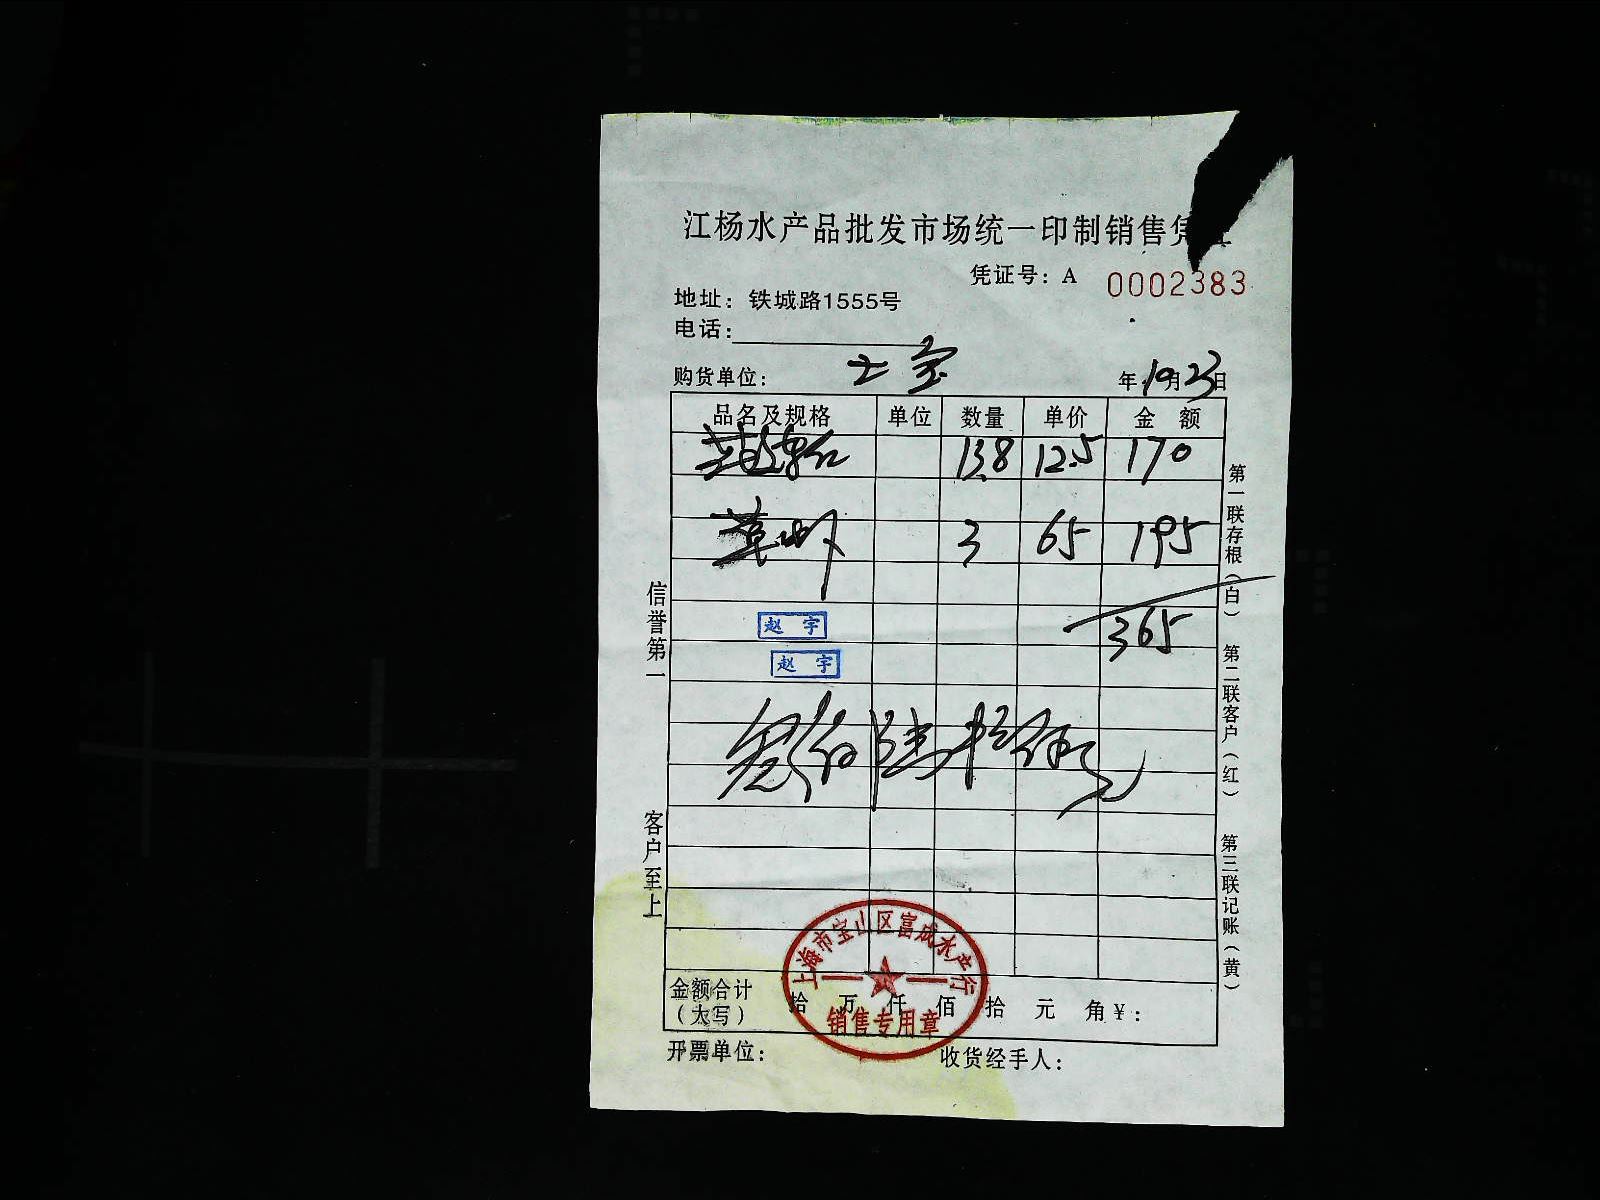 江杨水产品批发市场统一印制销售凭证
凭证号：A 0002383
地址：铁城路1555号
电话：
购货单位： 年10月23日
品名及规格 单位 数量 单价 金 额
13.8 12.5 170
草虾 3 65 195
365
赵 宇
赵 宇
叁佰陆拾伍元
金额合计（大写） 拾 万 仟 佰 拾 元 角￥：
开票单位： 收货经手人：
信誉第一
客户至上
第一联存根（白）
第二联客户（红）
第三联记账（黄）
上海市宝山区富成水产行
销售专用章